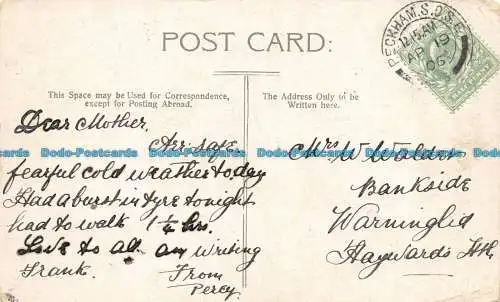 POST CARD:
This Space may be Used for Correspondence,
except for Posting Abroad.
The Address Only to be
Written here.
PECKHAM. S.O. S.E.
12.15 AM
AP 19
06
Dear Mother,
Arr safe
fearful cold weather today
Had a burst in tyre tonight
had to walk 1¼ hrs.
Love to all am writing
Frank.
From
Percy
Mrs W Waldin
Bankside
Warninglid
Haywards Hth
Dodo-Postcards Dodo-Postcards Dodo-Postcards Dodo-Postcards Dodo-Postcards